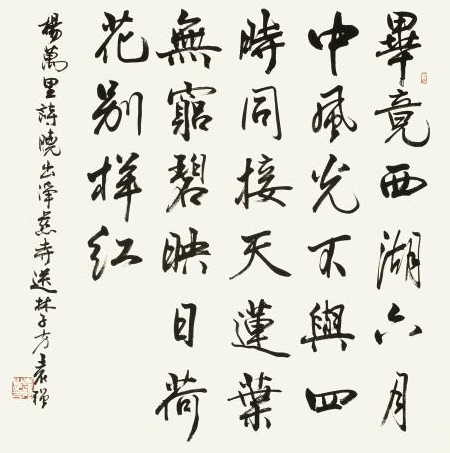 畢竟西湖六月
中風光不與四
時同接天蓮葉
無窮碧映日荷
花别样紅
楊萬里詩曉出淨慈寺送林子方袁强